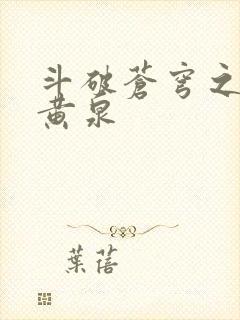 斗破蒼穹之
黄泉
葉蓓